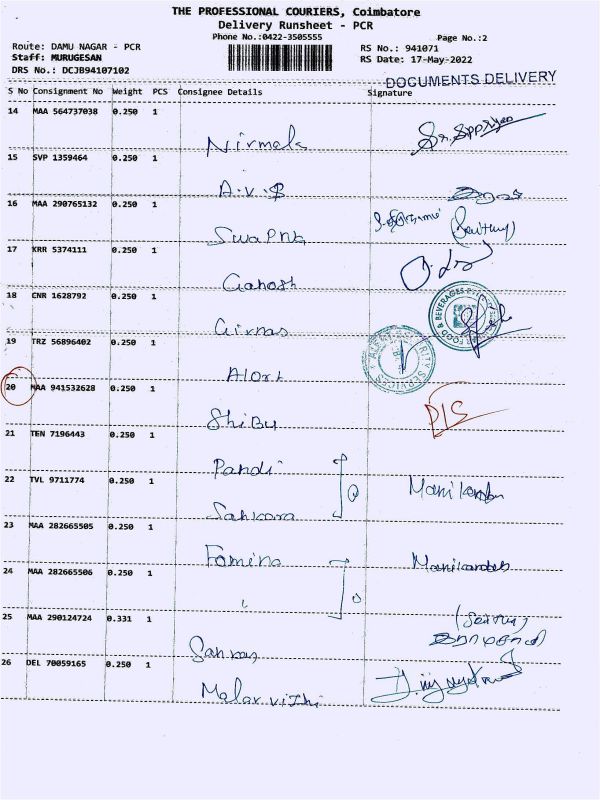 THE PROFESSIONAL COURIERS, Coimbatore
Delivery Runsheet - PCR
Phone No.:0422-3505555 Page No.:2
Route: DAMU NAGAR - PCR RS No.: 941071
Staff: MURUGESAN RS Date: 17-May-2022
DRS No.: DCJB94107102
DOCUMENTS DELIVERY
S No Consignment No Weight PCS Consignee Details Signature
14 MAA 564737038 0.250 1
Nirmala
15 SVP 1359464 0.250 1
A.V.B
16 MAA 290765132 0.250 1
Swapna
17 KRR 5374111 0.250 1
Ganesh
18 CNR 1628792 0.250 1
FOOD & BEVERAGES
19 TRZ 56896402 0.250 1
Alert
SERVICES
20 MAA 941532628 0.250 1
Shibu D/S
21 TEN 7196443 0.250 1
Pandi
22 TVL 9711774 0.250 1
Sankara
23 MAA 282665505 0.250 1
Famina
24 MAA 282665506 0.250 1
25 MAA 290124724 0.331 1
26 DEL 70059165 0.250 1
Malar vizhi